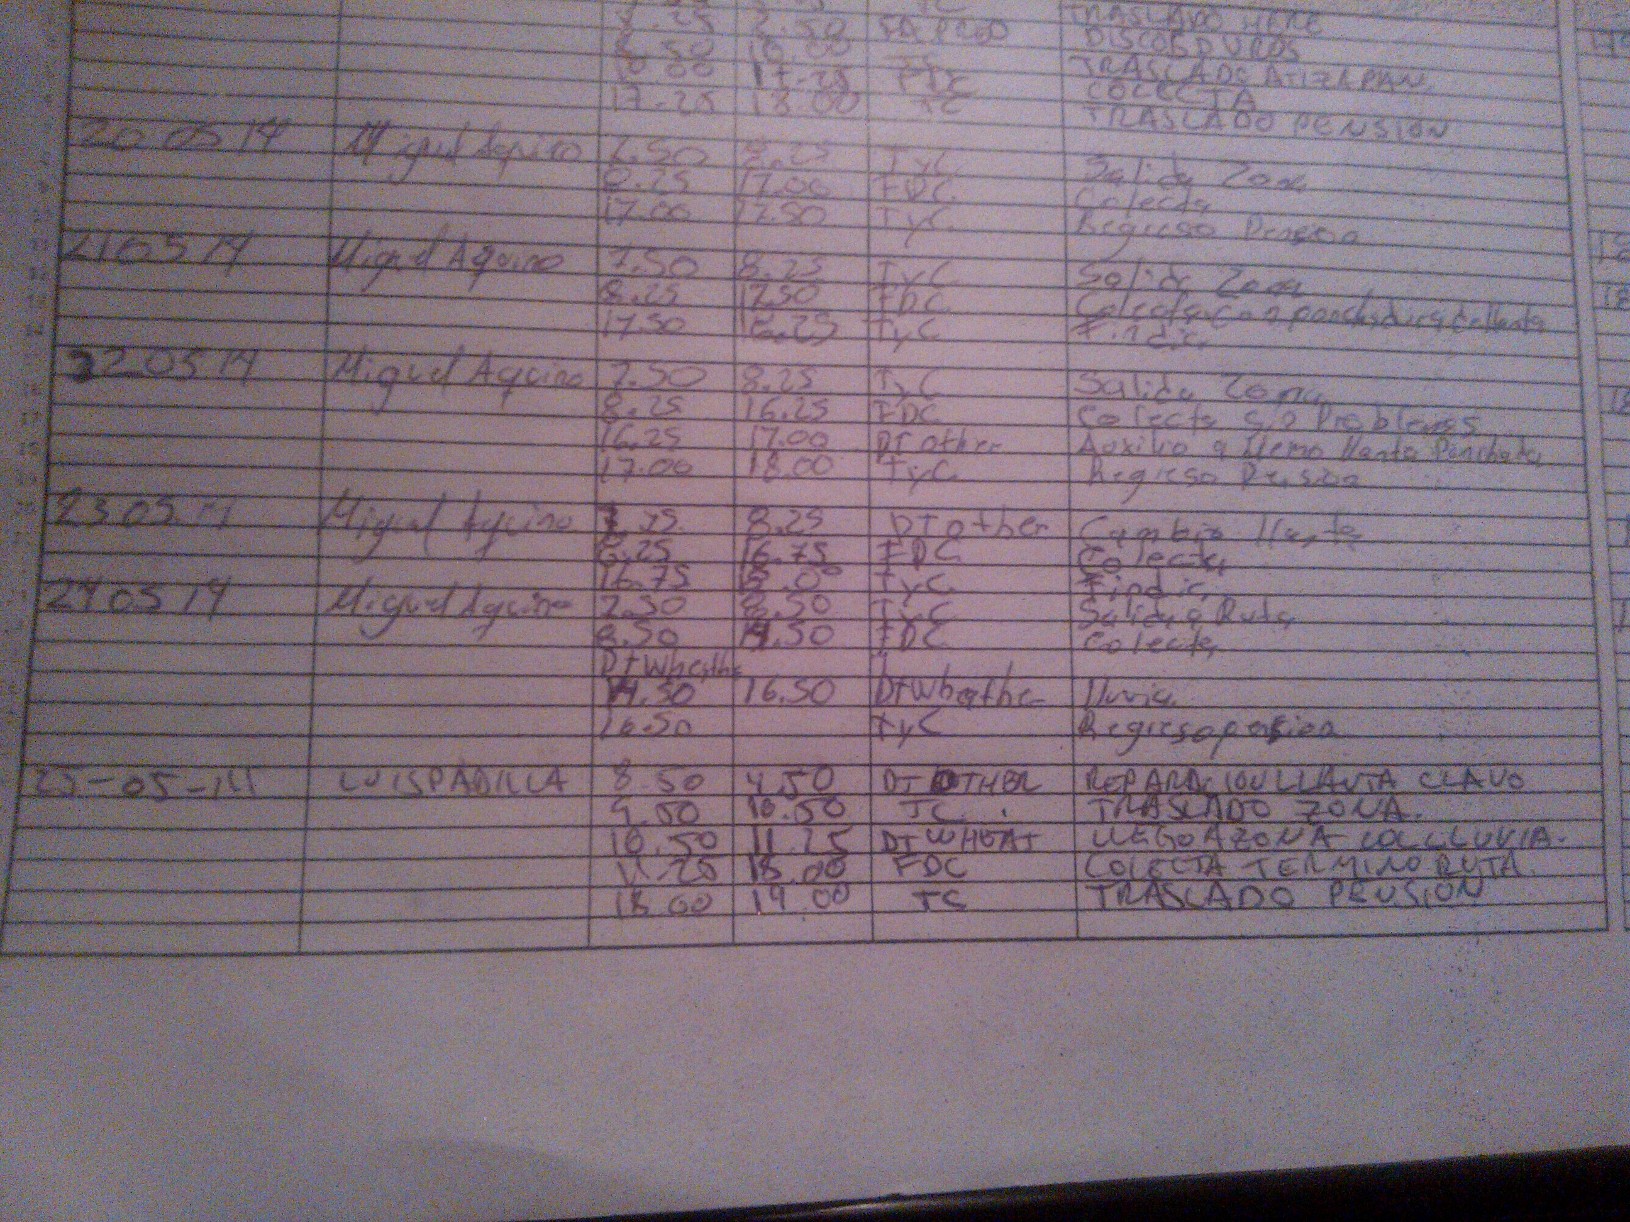 7.25 7.50 TRASLADO HERE
DISCOS DUROS
10.00 17-25 FDC TRASLADO ATIZAPAN
COLECTA
17-25 18.00 TC TRASLADO PENSION
20 05 14 Miguel Aquino 7.50 8.25 TyC Salida Zona
8.25 17.00 FDC Colecta
17.00 17.50 TyC Regreso Pension
21 05 14 Miguel Aquino 7.50 8.25 TyC Salida Zona
8.25 17.50 FDC Colecta con ponchadura de llanta
17.50 18.25 TyC Fin dia
22 05 14 Miguel Aquino 7.50 8.25 TyC Salida Zona
8.25 16.25 FDC Colecta Problemas
16.25 17.00 DT other Auxilio a Memo llanta Ponchata
17.00 18.00 TyC Regreso Pension
23 05 14 Miguel Aquino 7.25 8.25 DT other Cambio llanta
8.25 16.75 FDC Colecta
16.75 TyC Fin dia
24 05 14 Miguel Aquino 7.50 8.50 TyC Salida Ruta
8.50 14.50 FDC Colecta
DTWheathe
14.50 16.50 DTWheathe lluvia
16.50 TyC Regreso pension
25-05-14 LUIS PADILLA 8.50 9.50 DT OTHER REPARACION LLANTA CLAVO
9.50 10.50 TC. TRASLADO ZONA.
10.50 11.25 DTWHEAT LLEGO A ZONA COL LLUVIA.
11-25 18.00 FDC COLECTA TERMINO RUTA.
18.00 19.00 TC TRASLADO PENSION